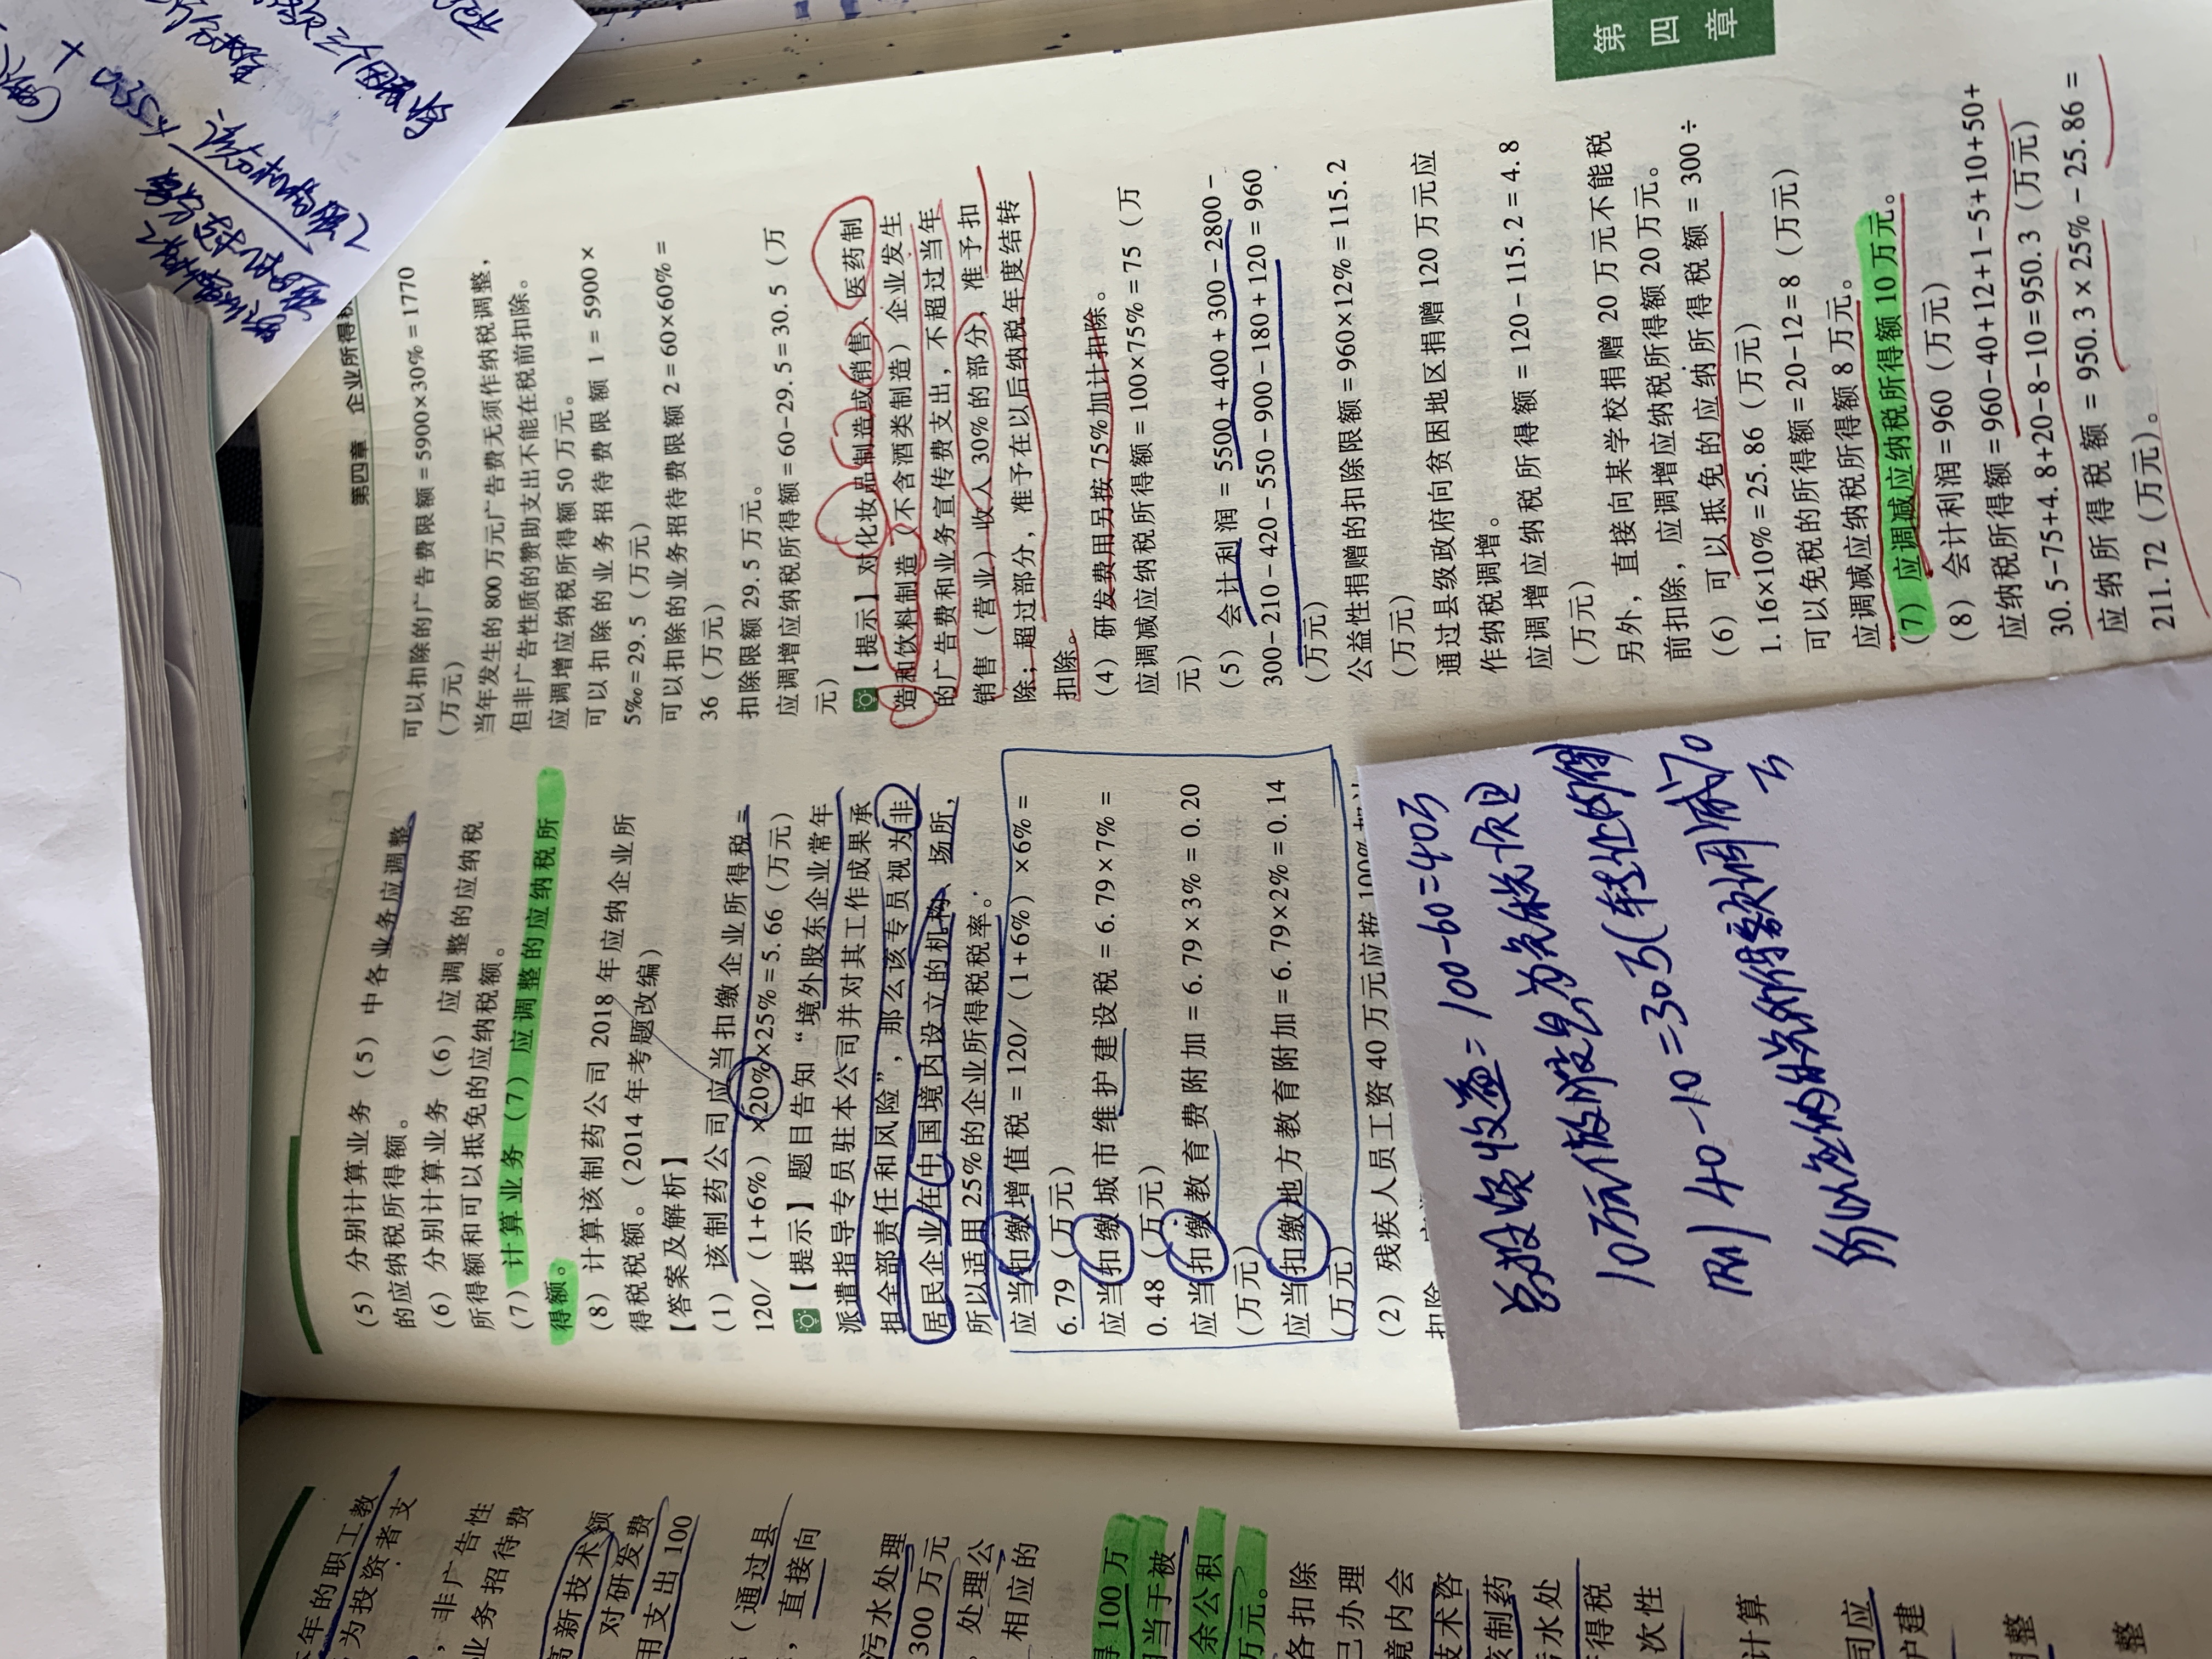 第四章 企业所得税
年的职工教
为投资者支
，非广告性
业务招待费
高新技术领
对研发费
用支出100
（通过县
，直接向
污水处理
300万元
处理公
相应的
得100万
相当于被
余公积
万元。
各扣除
已办理
境内会
技术咨
该制药
污水处
所得税
次性
计算
司应
护建
调整
整
（5）分别计算业务（5）中各业务应调整
的应纳税所得额。
（6）分别计算业务（6）应调整的应纳税
所得额和可以抵免的应纳税额。
（7）计算业务（7）应调整的应纳税所
得额。
（8）计算该制药公司2018年应纳企业所
得税税额。（2014年考题改编）
【答案及解析】
（1）该制药公司应当扣缴企业所得税=
120/（1+6%）×20%×25%=5.66（万元）
【提示】题目告知“境外股东企业常年
派遣指导专员驻本公司并对其工作成果承
担全部责任和风险”，那么该专员视为非
居民企业在中国境内设立的机构、场所，
所以适用25%的企业所得税税率。
应当扣缴增值税=120/（1+6%）×6%=
6.79（万元）
应当扣缴城市维护建设税=6.79×7%=
0.48（万元）
应当扣缴教育费附加=6.79×3%=0.20
（万元）
应当扣缴地方教育附加=6.79×2%=0.14
（万元）
（2）残疾人员工资40万元应按100%加计
扣除
总投资收益=100-60=40万
10万元做股息为免税项目
则40-10=30万(转让所得
所以应纳税所得额调减10
万
可以扣除的广告费限额=5900×30%=1770
（万元）
当年发生的800万元广告费无须作纳税调整，
但非广告性质的赞助支出不能在税前扣除。
应调增应纳税所得额50万元。
可以扣除的业务招待费限额1=5900×
5‰=29.5（万元）
可以扣除的业务招待费限额2=60×60%=
36（万元）
扣除限额29.5万元。
应调增应纳税所得额=60-29.5=30.5（万
元）
【提示】对化妆品制造或销售、医药制
造和饮料制造（不含酒类制造）企业发生
的广告费和业务宣传费支出，不超过当年
销售（营业）收入30%的部分，准予扣
除；超过部分，准予在以后纳税年度结转
扣除。
（4）研发费用另按75%加计扣除。
应调减应纳税所得额=100×75%=75（万
元）
（5）会计利润=5500+400+300-2800-
300-210-420-550-900-180+120=960
（万元）
公益性捐赠的扣除限额=960×12%=115.2
（万元）
通过县级政府向贫困地区捐赠120万元应
作纳税调增。
应调增应纳税所得额=120-115.2=4.8
（万元）
另外，直接向某学校捐赠20万元不能税
前扣除，应调增应纳税所得额20万元。
（6）可以抵免的应纳所得税额=300÷
1.16×10%=25.86（万元）
可以免税的所得额=20-12=8（万元）
应调减应纳税所得额8万元。
（7）应调减应纳税所得额10万元。
（8）会计利润=960（万元）
应纳税所得额=960-40+12+1-5+10+50+
30.5-75+4.8+20-8-10=950.3（万元）
应纳所得税额=950.3×25%-25.86=
211.72（万元）。
第
四
章